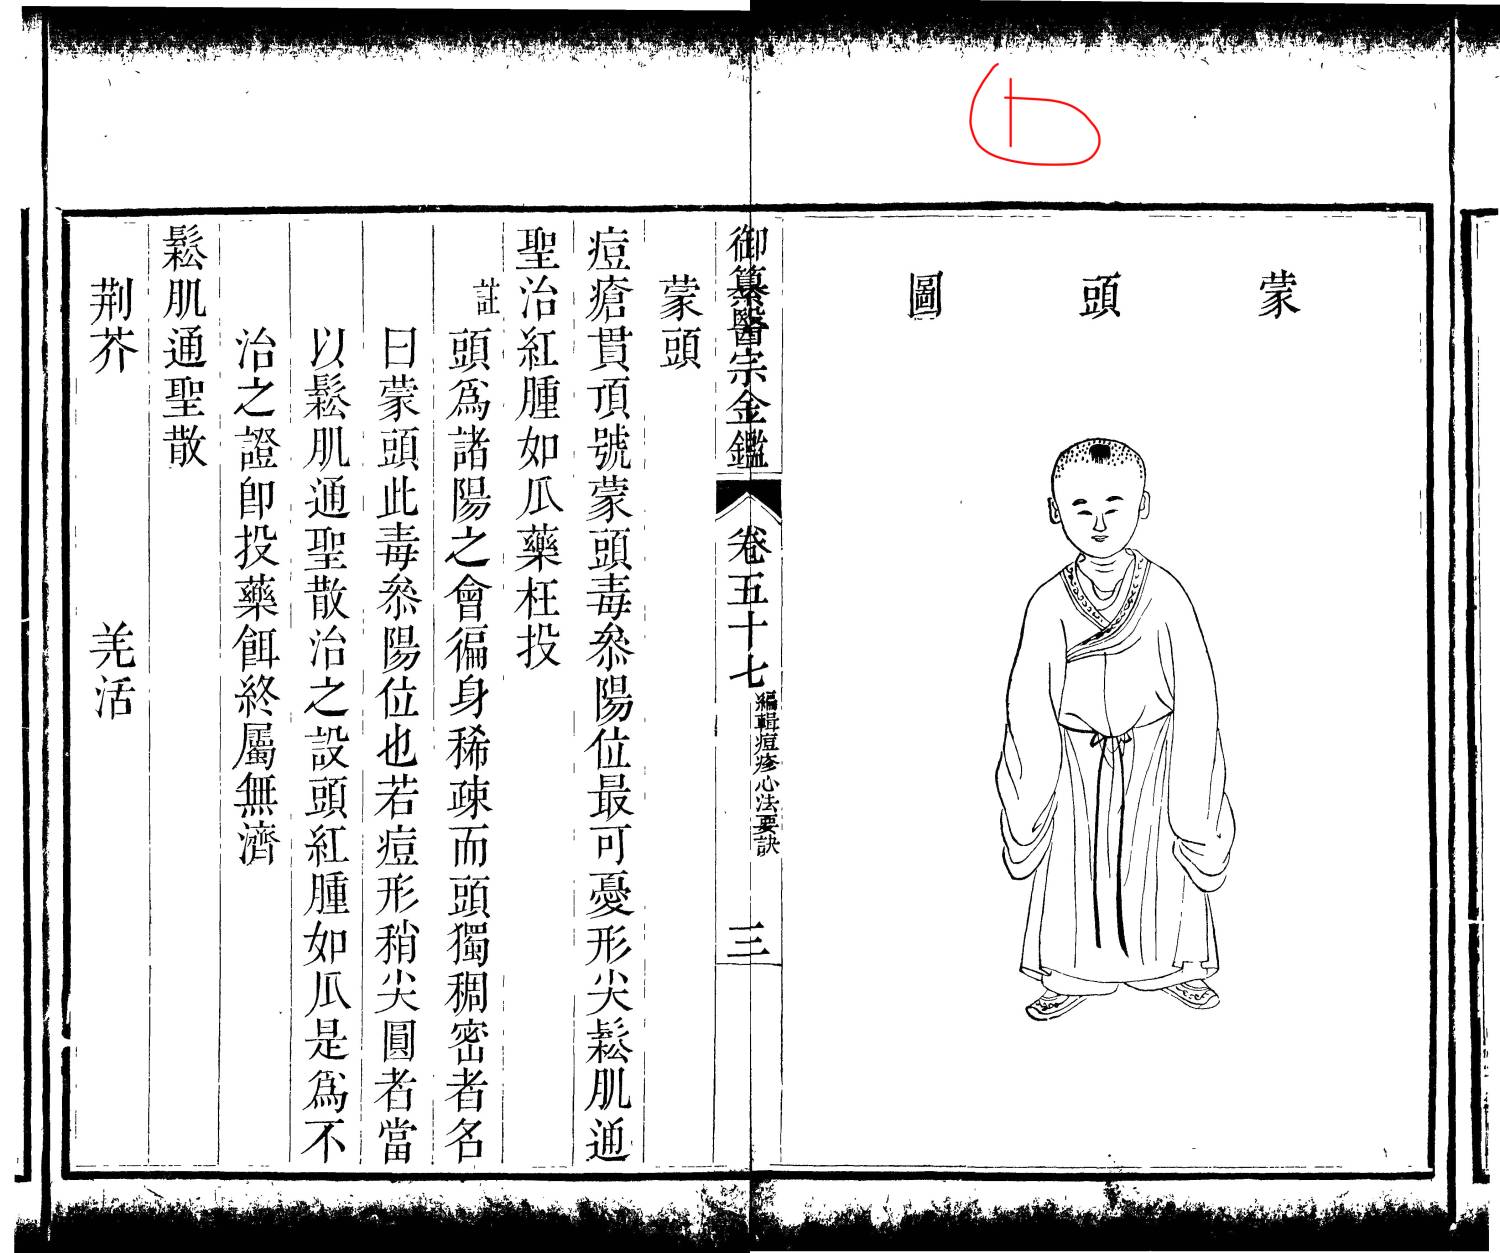 蒙頭圖
御纂醫宗金鑑 卷五十七 編輯痘疹心法要訣 三
蒙頭
痘瘡貫頂號蒙頭毒叅陽位最可憂形尖鬆肌通
聖治紅腫如瓜藥枉投
註頭爲諸陽之會徧身稀疎而頭獨稠密者名
曰蒙頭此毒叅陽位也若痘形稍尖圓者當
以鬆肌通聖散治之設頭紅腫如瓜是爲不
治之證卽投藥餌終屬無濟
鬆肌通聖散
荆芥 羌活